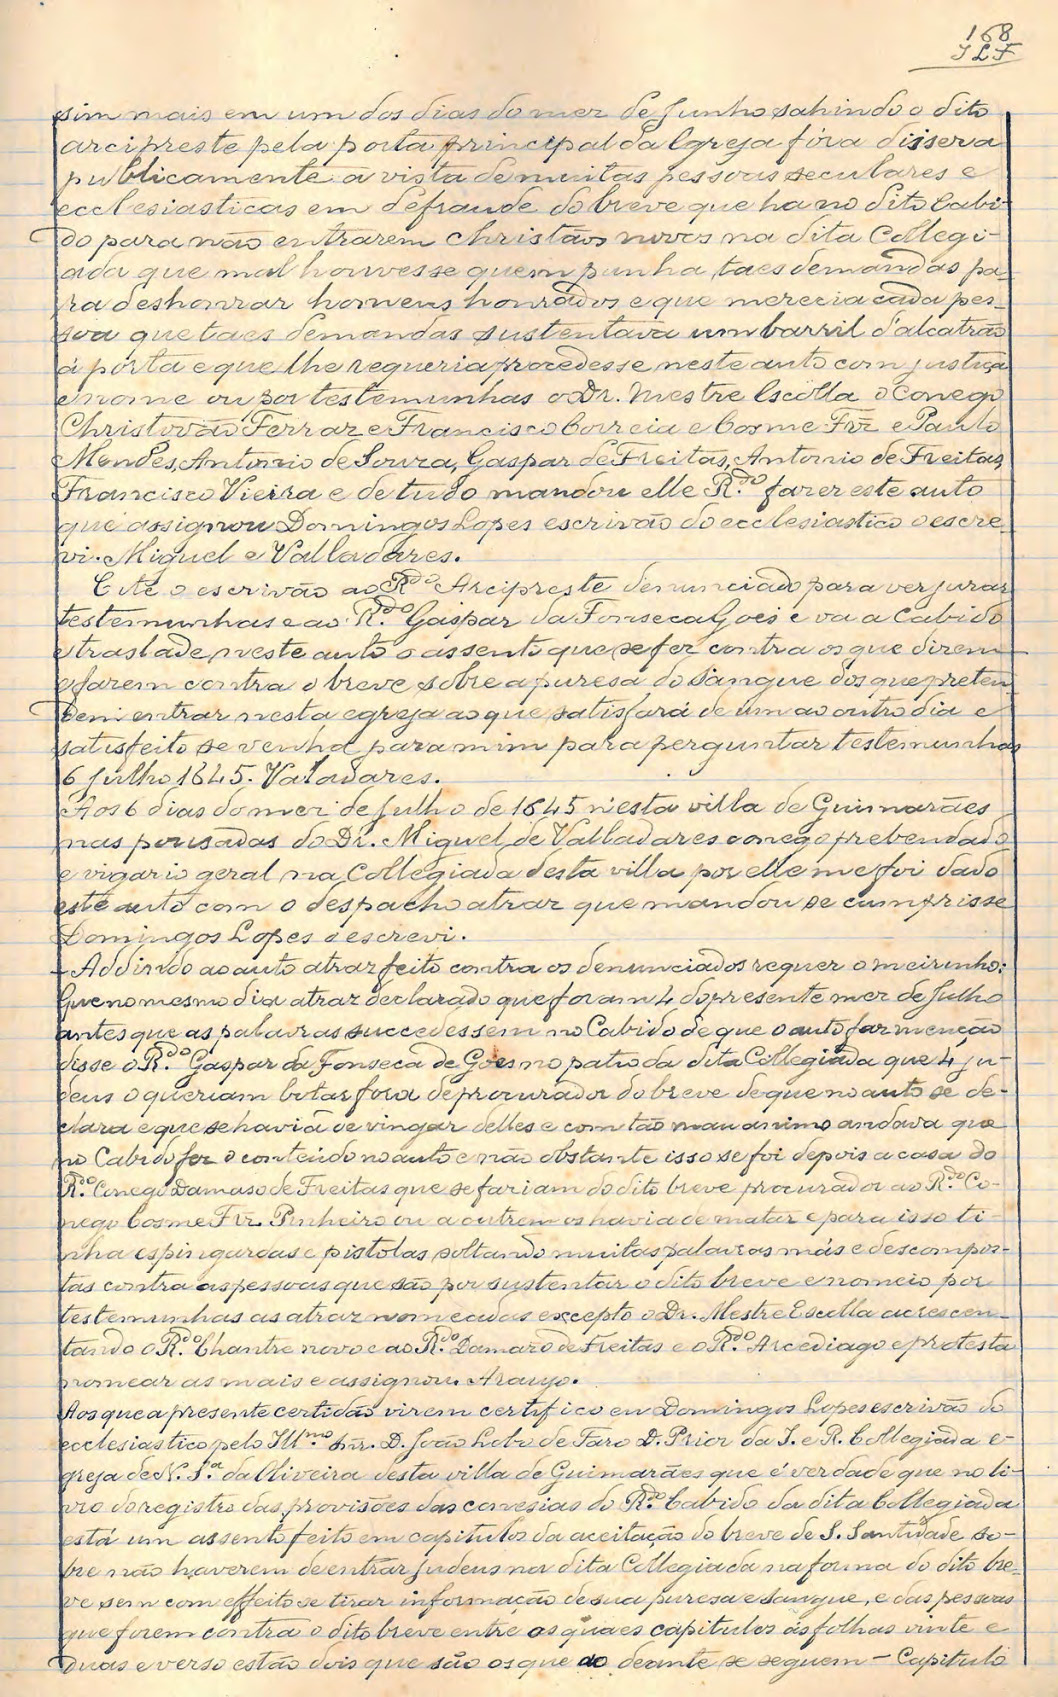 168
J L F
sim mais em um dos dias do mez de Junho sahindo o dito
arcipreste pela porta principal da Egreja fóra dissera
publicamente a vista de muitas pessoas seculares e
ecclesiasticas em defraude do breve que ha no dito Cabi-
do para não entrarem christãos novos na dita Collegi-
ada que mal houvesse quem punha taes demandas pa-
ra deshonrar homens honrados e que merecia cada pes-
soa que taes demandas sustentava um barril d'alcatrão
á porta e que lhe requeria procedesse neste auto com justiça
e nomeou por testemunhas o Dr. Mestre Escólla o Conego
Christovão Ferraz e Francisco Correia e Cosme Frz e Paulo
Mendes, Antonio de Souza, Gaspar de Freitas, Antonio de Freitas,
Francisco Vieira e de tudo mandou elle R.do fazer este auto
que assignou Domingos Lopes escrivão do ecclesiastico o escre-
vi. Miguel e Valladares.
Cite o escrivão ao R.do Arcipreste denunciado para ver jurar
testemunhas e ao R.do Gaspar da Fonseca Goes e va a Cabido
e traslade neste auto o assento que se fez contra os que direm
e farem contra o breve sobre a puresa do sangue dos que preten-
dem entrar nesta egreja ao que satisfará de um ao outro dia e
satisfeito se venha para mim para perguntar testemunhas
6 Julho 1645. Valadares.
Aos 6 dias do mez de Julho de 1645 n'esta villa de Guimarães
nas pousadas do Dr. Miguel de Valladares conego prebendado
e vigario geral na Collegiada desta villa por elle me foi dado
este auto com o despacho atraz que mandou se cumprisse
Domingos Lopes o escrevi.
Addindo ao auto atraz feito contra os denunciados requer o meirinho:
Que no mesmo dia atraz declarado que foram 4 do presente mez de Julho
antes que as palavras succedessem no Cabido de que o auto faz menção
disse o R.do Gaspar da Fonseca de Goes no patio da dita Collegiada que 4 ju-
deus o queriam botar fóra de procurador do breve de que no auto se de-
clara e que se havia de vingar delles e com tão mau animo andava que
no Cabido fez o conteúdo no auto e não obstante isso se foi depois a casa do
R.do Conego Damaso de Freitas que se fariam do dito breve procurador ao R.do Co-
nego Cosme Frz Pinheiro ou a outrem os havia de matar e para isso ti-
nha espingardas e pistolas soltando muitas palavras más e descompos-
tas contra as pessoas que são por sustentar o dito breve e nomeio por
testemunhas as atraz nomeadas excepto o Dr. Mestre Escolla acrescen-
tando o R.do Chantre novo e ao R.do Damazo de Freitas e o R.do Arcediago e protesta
nomear as mais e assignou. Araujo.
Aos que a presente certidão virem certifico eu Domingos Lopes escrivão do
ecclesiastico pelo Ill.mo Snr. D. João Lobo de Faro D. Prior da I. e R. Collegiada e-
greja de N. S.a da Oliveira desta villa de Guimarães que é verdade que no li-
vro do registro das provisões das conesias do R.do Cabido da dita Collegiada
está um assento feito em capitulos da aceitação do breve de S. Santidade so-
bre não haverem de entrar judeus na dita Collegiada na forma do dito bre-
ve sem com effeito se tirar informação de sua puresa e sangue, e das pessoas
que forem contra o dito breve entre os quaes capitulos ás folhas vinte e
duas e verso estão dois que são os que ao deante se seguem - Capitulo